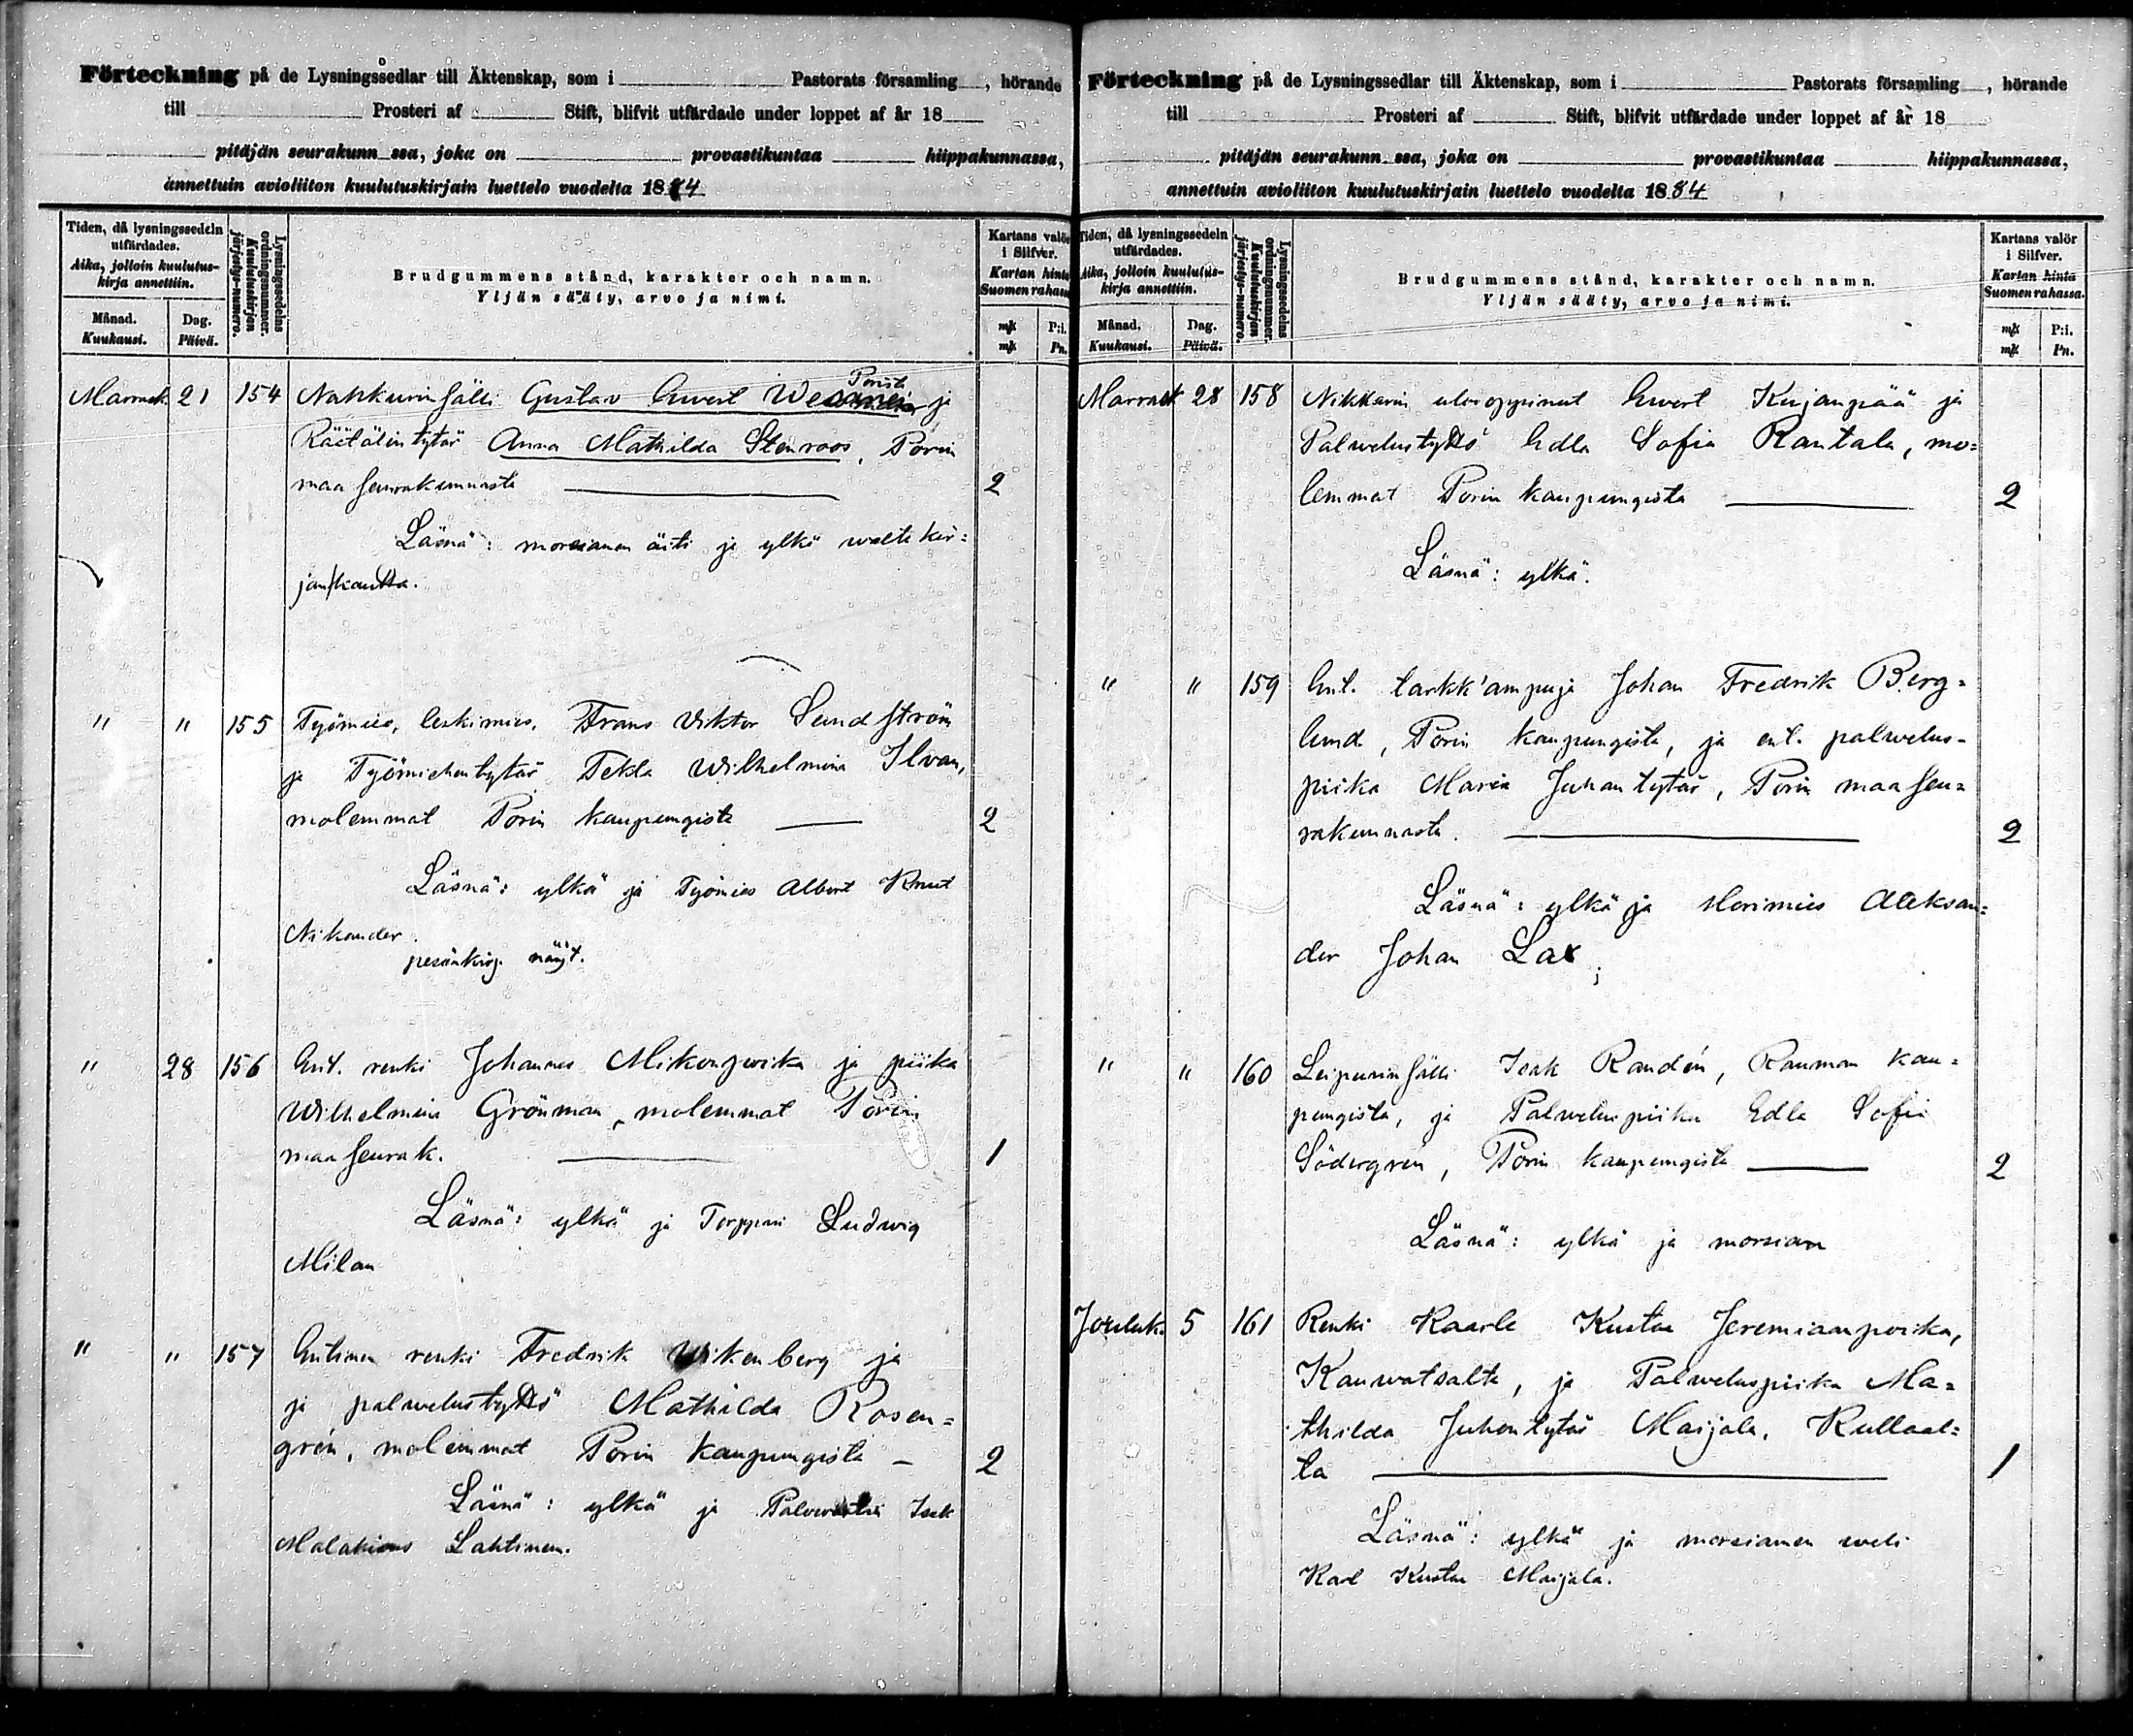 Förteckning på de Lysningssedlar till Äktenskap, som i Pastorats församling , hörande
till Prosteri af Stift, blifvit utfärdade under loppet af år 18
pitäjän seurakunn ssa, joka on provastikuntaa hiippakunnassa,
annettuin avioliiton kuulutuskirjain luettelo vuodelta 1884
Tiden, då lysningssedeln
utfärdades.
Aika, jolloin kuulutus-
kirja annettiin.
Månad.
Kuukausi.
Dag.
Päivä.
Lysningssedelns
ordningsnummer.
Kuulutuskirjan
järjestys-numero.
Brudgummens stånd, karakter och namn.
Yljän sääty, arvo ja nimi.
Kartans valör
i Silfver.
Kartan hinta
Suomen rahassa
mk P:i.
mk Pn.
Porista
Marrask. 21 154 Nahkurinsälli Gustav Evert ja
Räätälin tytär Anna Mathilda Stenroos, Porin
maaseurakunnasta 2
Läsnä: morsiamen äiti ja ylkä valtakir=
jan kautta.
" " 155 Työmies, leskimies, Frans Viktor Sundström
ja Työmiehentytär Tekla Wilhelmina Ilvan,
molemmat Porin kaupungista 2
Läsnä: ylkä ja Työmies Albert Knut
Nikander.
pesänkirj. näyt.
" 28 156 Ent. renki Johannes Mikonpoika ja piika
Wilhelmina Grönman, molemmat Porin
maaseurak. 1
Läsnä: ylkä ja Torppari Ludwig
Milan
" " 157 Entinen renki Fredrik Wikenberg ja
ja palwelustyttö Mathilda Rosen=
grén, molemmat Porin kaupungista – 2
Läsnä: ylkä ja Isak
Malakias Lahtinen.
Förteckning på de Lysningssedlar till Äktenskap, som i Pastorats församling , hörande
till Prosteri af Stift, blifvit utfärdade under loppet af år 18
pitäjän seurakunn ssa, joka on provastikuntaa hiippakunnassa,
annettuin avioliiton kuulutuskirjain luettelo vuodelta 1884
Tiden, då lysningssedeln
utfärdades.
Aika, jolloin kuulutus-
kirja annettiin.
Månad.
Kuukausi.
Dag.
Päivä.
Lysningssedelns
ordningsnummer.
Kuulutuskirjan
järjestys-numero.
Brudgummens stånd, karakter och namn.
Yljän sääty, arvo ja nimi.
Kartans valör
i Silfver.
Kartan hinta
Suomen rahassa.
mk P:i.
mk Pn.
Marrask 28 158 Nikkarin ulosoppinut Evert Kujanpää ja
Palwelustyttö Edla Sofia Rantala, mo=
lemmat Porin kaupungista 2
Läsnä: ylkä.
" " 159 Ent. tarkk'ampuja Johan Fredrik Berg=
lund, Porin kaupungista, ja ent. palwelus-
piika Maria Juhantytär, Porin maaseu=
rakunnasta. 2
Läsnä: ylkä ja Merimies Aleksan=
der Johan Lax
" " 160 Leipurinsälli Isak Randén, Rauman kau=
pungista, ja Palweluspiika Edla Sofia
Södergren, Porin kaupungista 2
Läsnä: ylkä ja morsian
Jouluk. 5 161 Renki Kaarle Kustaa Jeremiaanpoika,
Kauwatsalta, ja Palweluspiika Ma=
thilda Juhontytär Maijala, Kullaal=
ta 1
Läsnä: ylkä ja morsiamen weli
Karl Kustaa Maijala.